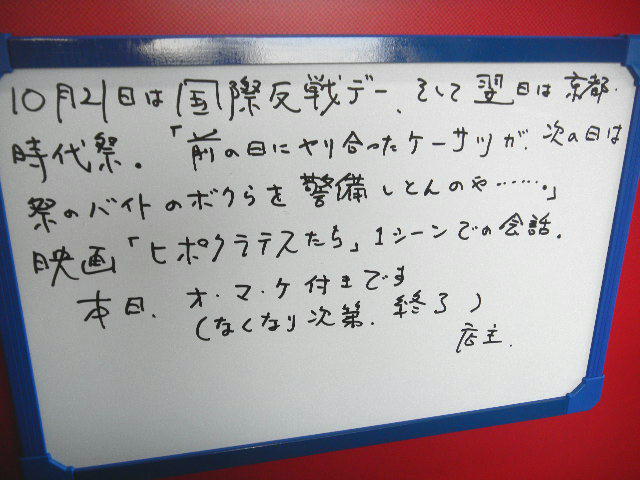 10月21日は国際反戦デー、そして翌日は京都・
時代祭。「前の日にやり合ったケーサツが、次の日は
祭のバイトのボクらを警備しとんのや……。」
映画「ヒポクラテスたち」1シーンでの会話。
本日、オ・マ・ケ付きです
(なくなり次第、終了)
店主.